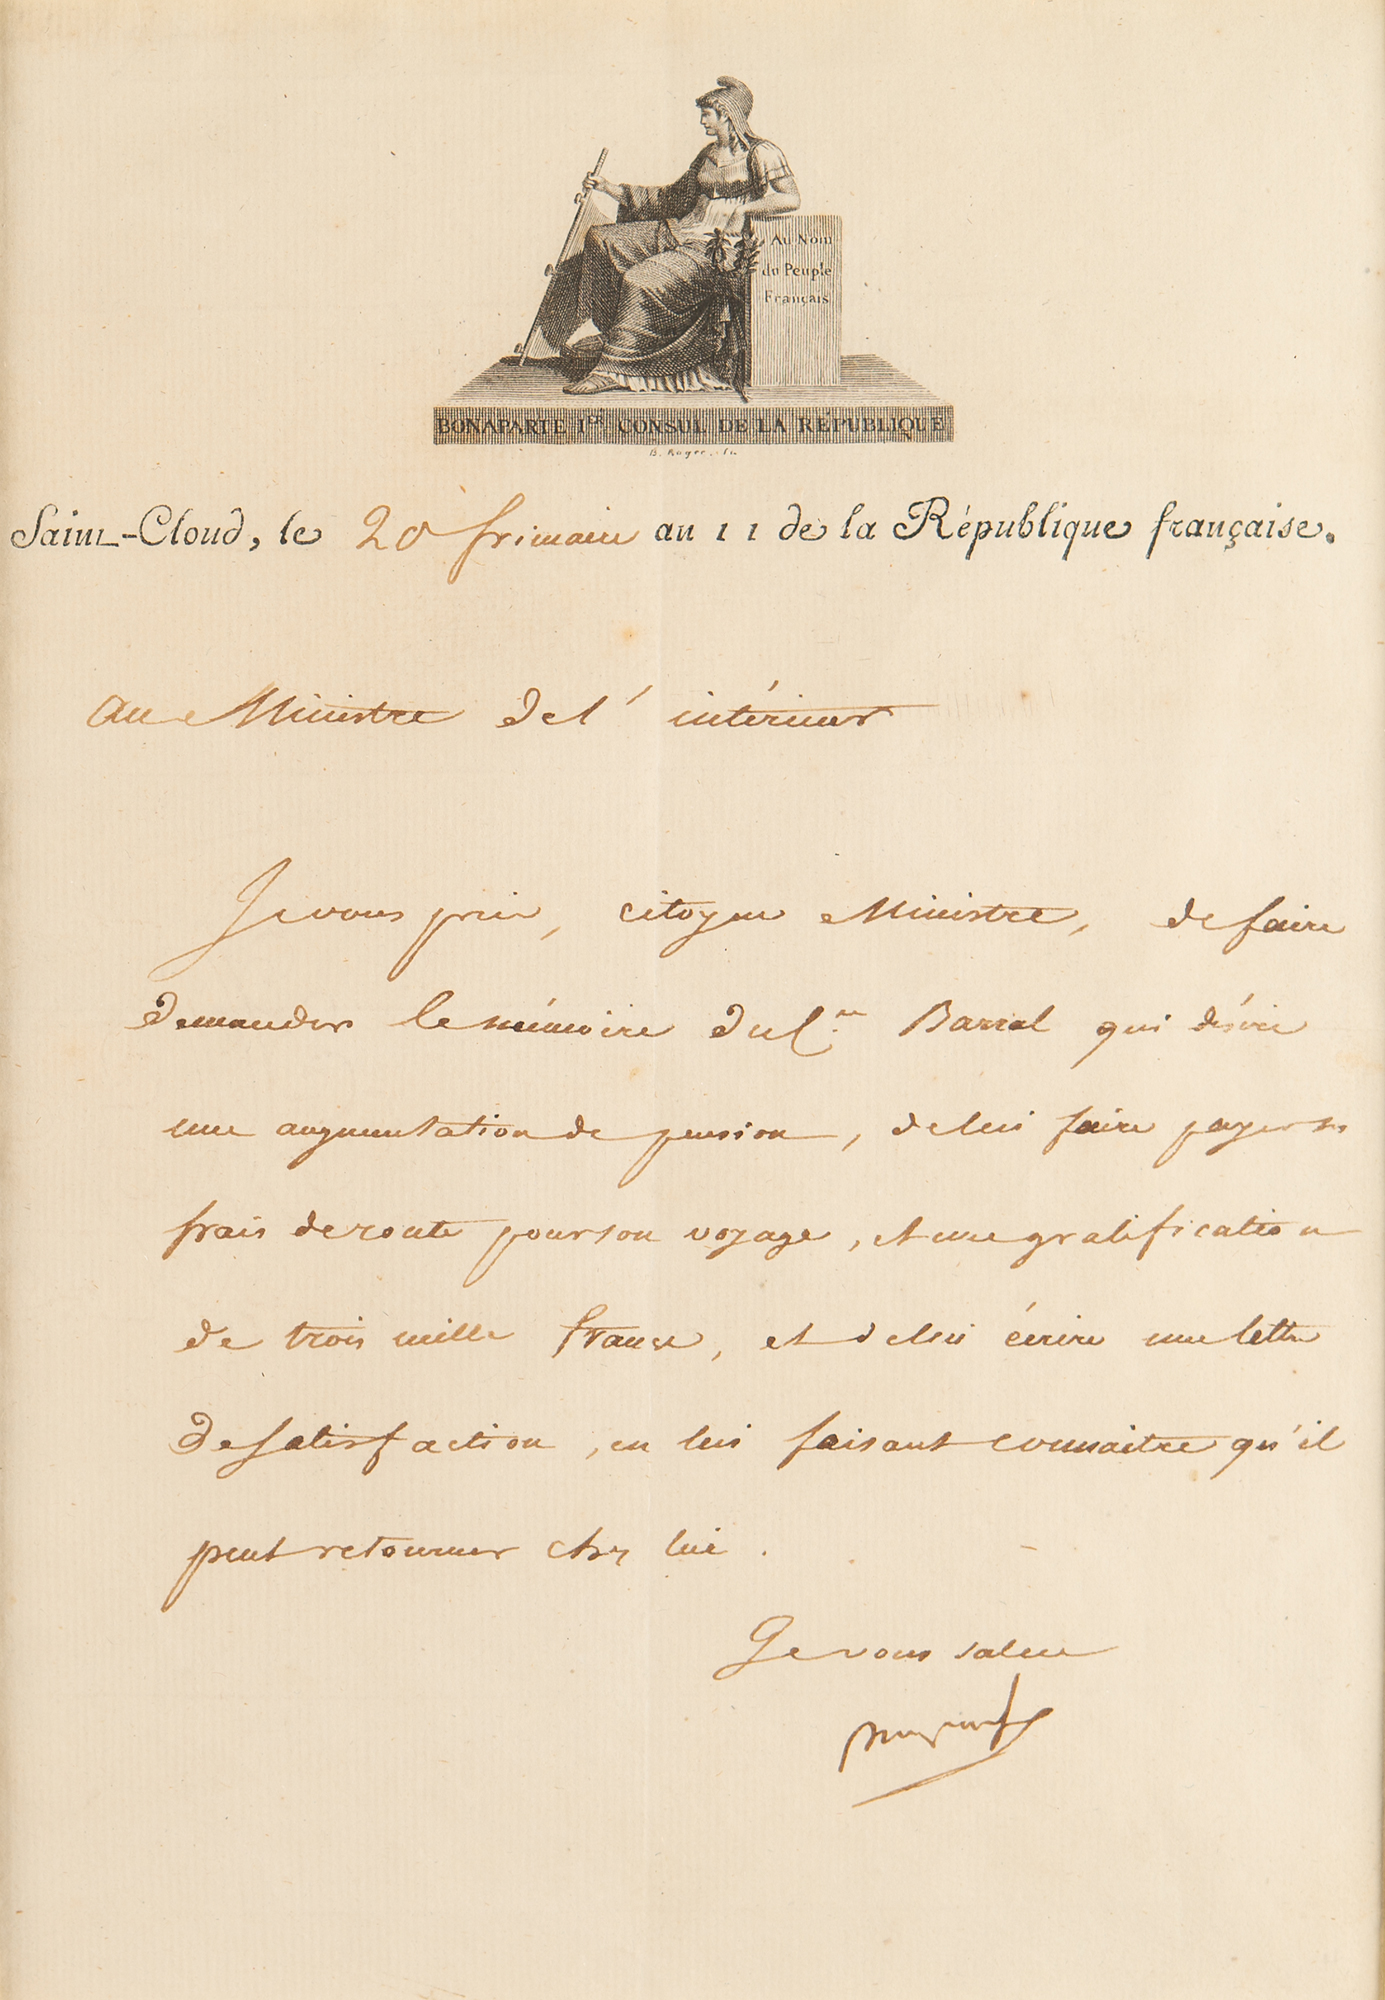 Au Nom
du Peuple
Français
BONAPARTE I.ER CONSUL DE LA RÉPUBLIQUE
B. Roger
Saint-Cloud, le 20 frimaire an 11 de la République française.
Au Ministre de l'intérieur
Je vous prie, citoyen Ministre, de faire
demander le mémoire du Barral qui désire
une augmentation de pension, de lui faire payer ses
frais de route pour son voyage, et une gratification
de trois mille francs, et de lui écrire une lettre
de satisfaction, en lui faisant connaitre qu'il
peut retourner chez lui.
Je vous salue